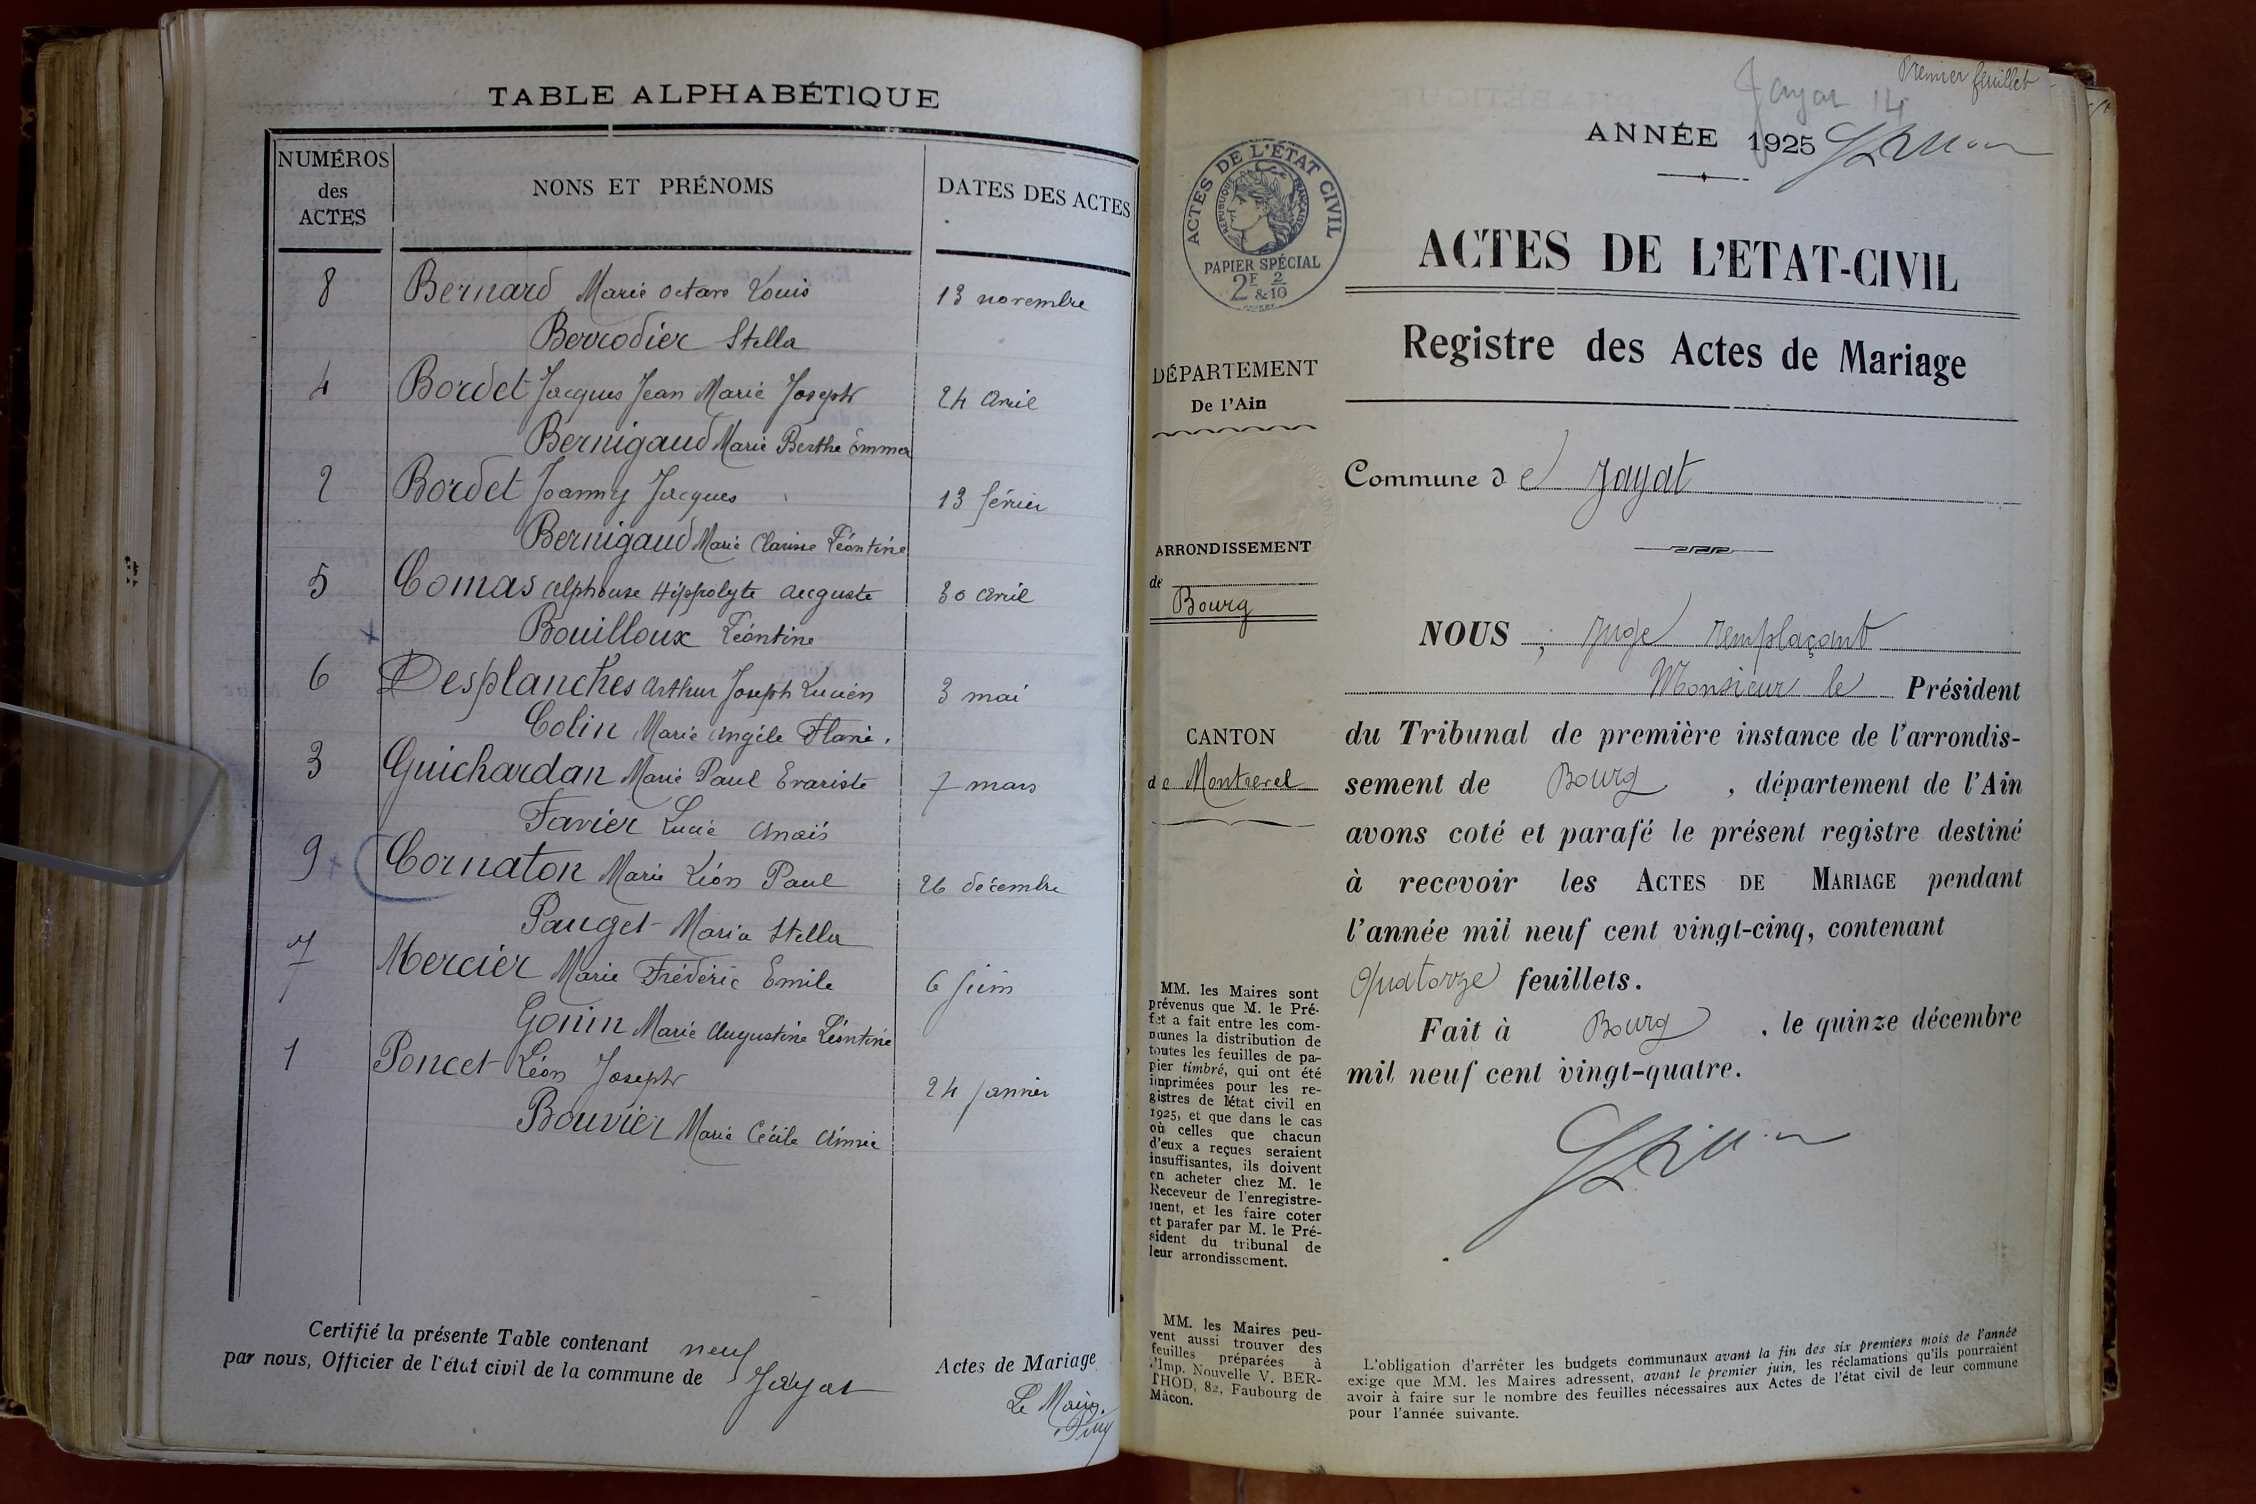 TABLE ALPHABÉTIQUE
NUMÉROS
des
ACTES
NONS ET PRÉNOMS
DATES DES ACTES
8 Bernard Marie Octave Louis 13 novembre
Berrodier Stella
4 Bordet Jacques Jean Marie Joseph 24 avril
Bernigaud Marie Berthe Emma
2 Bordet Joanny Jacques 13 février
Bernigaud Marie Clarisse Léontine
5 Comas Alphonse Hippolyte Auguste 30 avril
Bouilloux Léontine
6 Desplanches Arthur Joseph Lucien 3 mai
Colin Marie Angèle
3 Guichardan Marie Paul Evariste 7 mars
Favier Lucie Anaïs
9 Cornaton Marie Léon Paul 26 décembre
Pauget Maria Stella
7 Mercier Marie Frédéric Emile 6 juin
Gonin Marie Augustine Léontine
1 Poncet Léon Joseph 24 janvier
Bouvier Marie Cécile Aimée
Certifié la présente Table contenant neuf Actes de Mariage
par nous, Officier de l'état civil de la commune de Jayat
Le Maire,
Premier feuillet
Jayat 14
ANNÉE 1925
ACTES DE L'ÉTAT CIVIL
RÉPUBLIQUE FRANÇAISE
PAPIER SPÉCIAL
2F 2
&10
ACTES DE L'ETAT-CIVIL
Registre des Actes de Mariage
DÉPARTEMENT
De l'Ain
ARRONDISSEMENT
de
Bourg
CANTON
de Montrevel
MM. les Maires sont
prévenus que M. le Pré-
fet a fait entre les com-
munes la distribution de
toutes les feuilles de pa-
pier timbré, qui ont été
imprimées pour les re-
gistres de l'état civil en
1925, et que dans le cas
où celles que chacun
d'eux a reçues seraient
insuffisantes, ils doivent
en acheter chez M. le
Receveur de l'enregistre-
ment, et les faire coter
et parafer par M. le Pré-
sident du tribunal de
leur arrondissement.
MM. les Maires peu-
vent aussi trouver des
feuilles préparées à
l'Imp. Nouvelle V. BER-
THOD, 82, Faubourg de
Mâcon.
Commune de Jayat
NOUS , Juge remplaçant
Monsieur le Président
du Tribunal de première instance de l'arrondis-
sement de Bourg , département de l'Ain
avons coté et parafé le présent registre destiné
à recevoir les ACTES DE MARIAGE pendant
l'année mil neuf cent vingt-cinq, contenant
Quatorze feuillets.
Fait à Bourg , le quinze décembre
mil neuf cent vingt-quatre.
L'obligation d'arrêter les budgets communaux avant la fin des six premiers mois de l'année
exige que MM. les Maires adressent, avant le premier juin, les réclamations qu'ils pourraient
avoir à faire sur le nombre des feuilles nécessaires aux Actes de l'état civil de leur commune
pour l'année suivante.